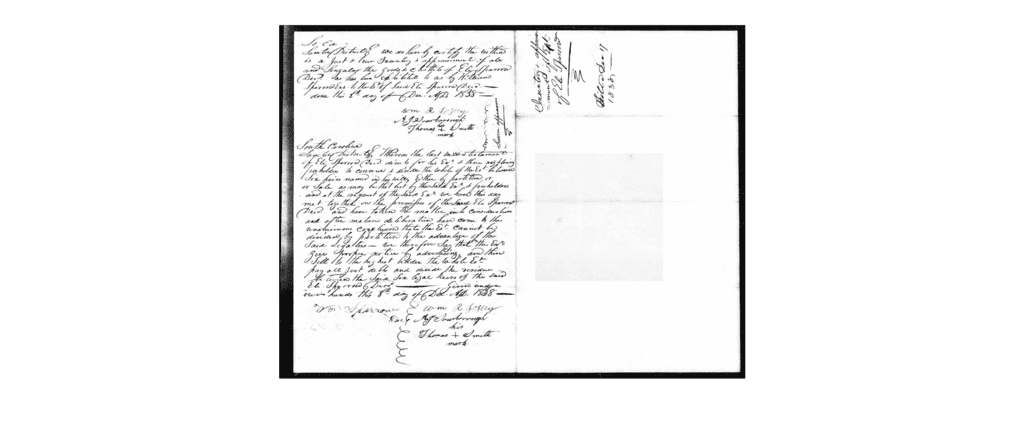 So. Ca.
Sumter District we do hereby certify the within
is a Just & true Inventory & appraisment of all
and Singular the goods & Chattels of Eli Sparrow
Decd. as was exhibited to us by William
Sparrow Exr to the Est. of Said Eli Sparrow Decd.
done this 8th day of Dec. AD. 1838
Wm R
A J Scarborough
Thomas + Smith
mark
South Carolina
Sumter District Whereas the last will & testament
of Eli Sparrow Decd. for his Exr. & three neighboring
freeholders to convene & divide the whole of the Est. between
Six heirs named in his will Either by partition or
or Sale as may be thot best by the said Exr. & freeholders
and at the request of the Said Exr we have this day
met together on the premises of the Said Eli Sparrow
Decd. and have taken the matter into consideration
and after mature deliberation have come to the
unanimous conclusion that the Est. Cannot be
divided by partition to the advantage of the
Said Legatees we therefore Say that the Exr
give proper notice by advertising and then
Sell to the highest bidder the whole Est.
pay all just debts and divide the residue
between the Said Six legal heirs of the said
Eli Sparrow Decd. Given under
our hands this 8th day of Dec. AD. 1838
Wm Sparrow
Wm R
A J Scarborough
his
Thomas + Smith
mark
Inventory & apprais
of Eli Sparrow
1838